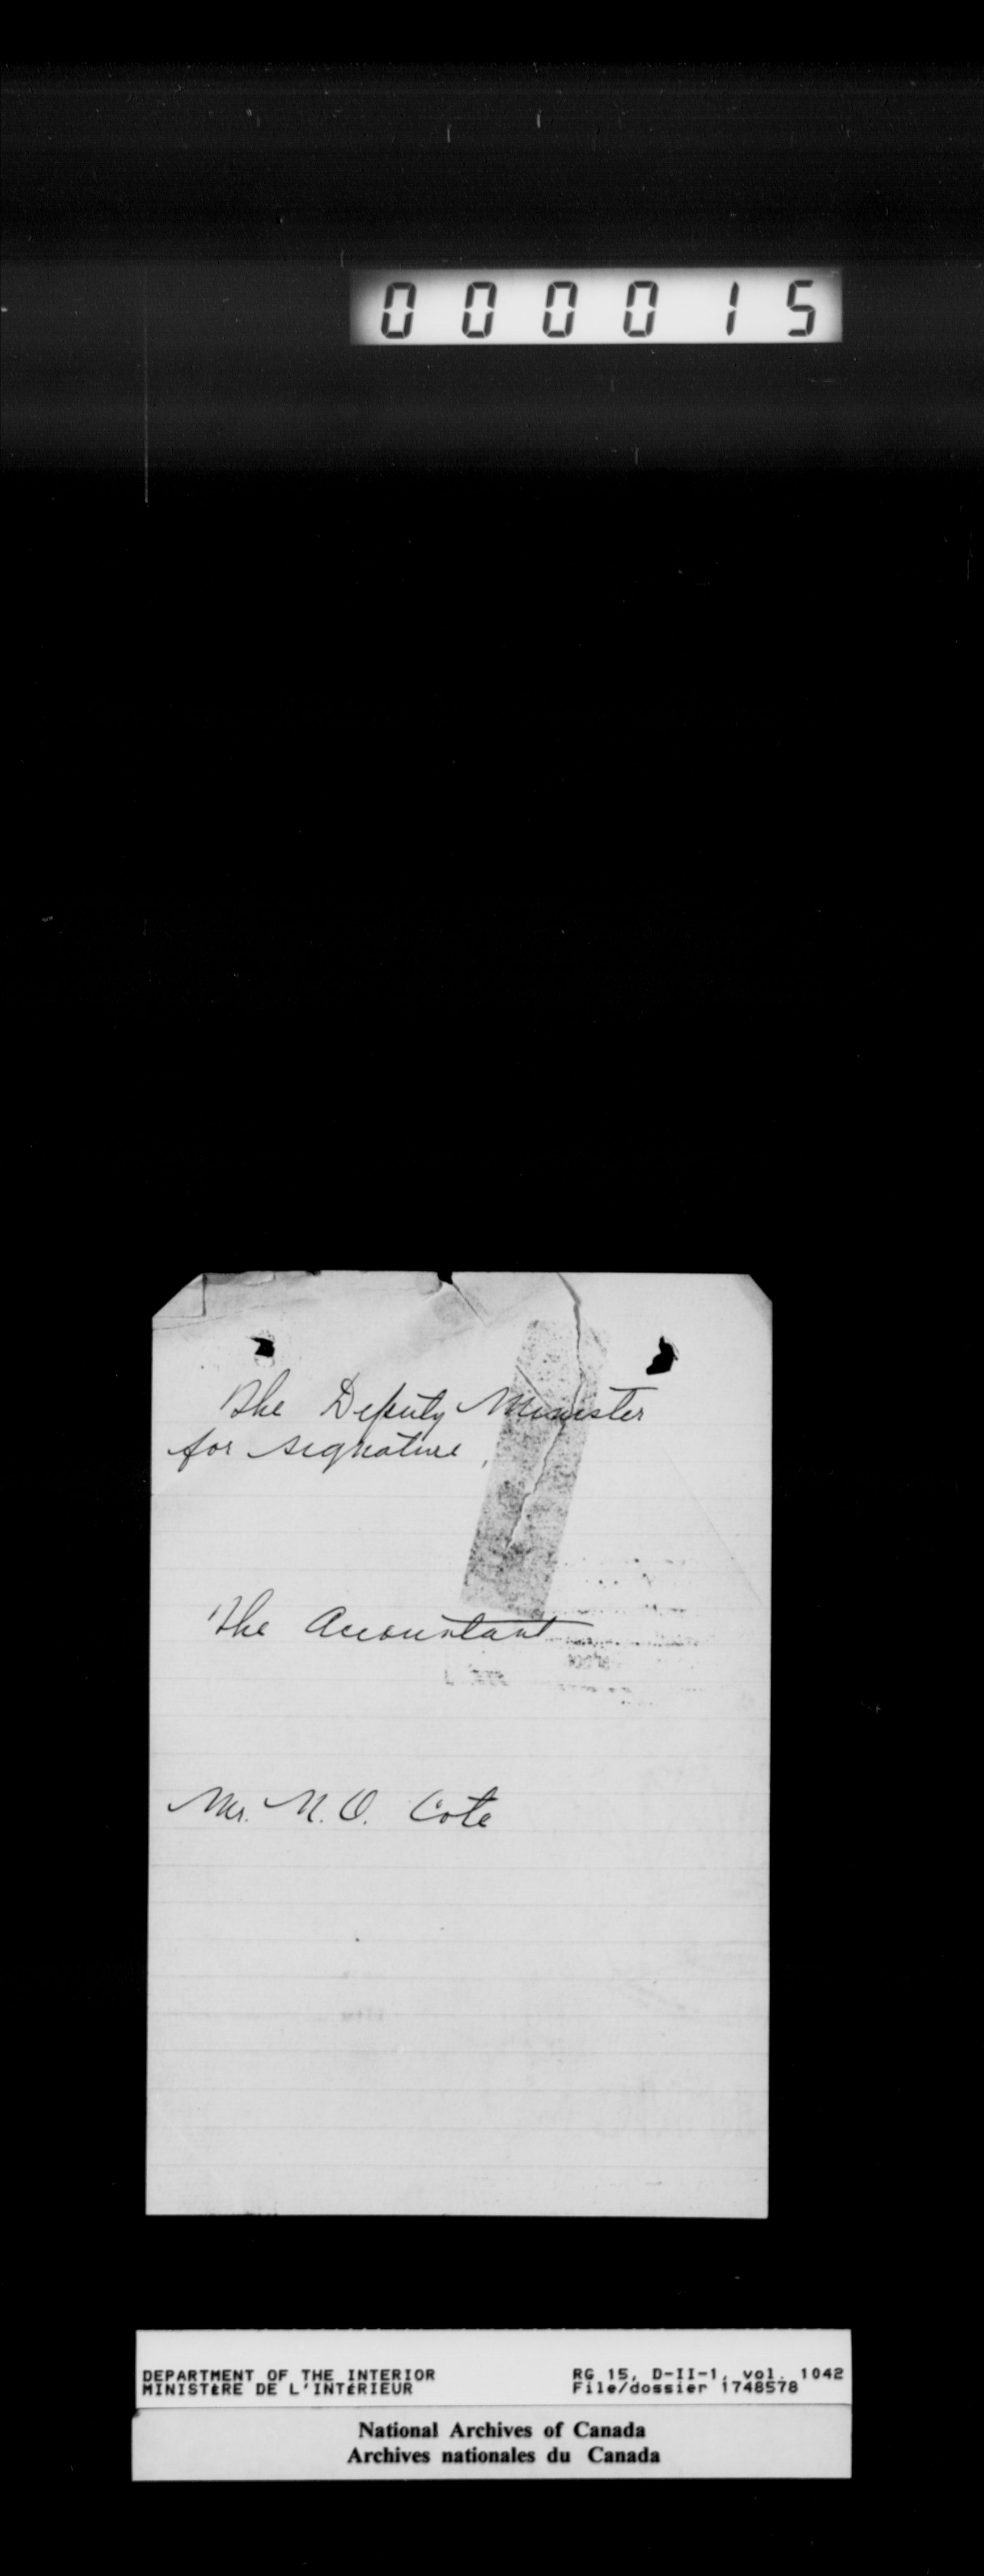 000015
The Deputy Minister
for signature,
The Accountant
Mr. N.O. Cote
DEPARTMENT OF THE INTERIOR
MINISTÈRE DE L'INTÉRIEUR
RG 15, D-II-1, vol. 1042
File/dossier 1748578
National Archives of Canada
Archives nationales du Canada